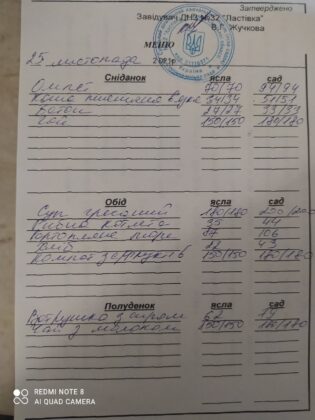 Затверджено
Завідувач ДНЗ №32 "Ластівка"
В.Г. Жучкова
МЕНЮ
25 листопада 2021р
Сніданок ясла сад
Омлет 70/70 94/94
Каша пшенична 34/34 51/51
Батон 27/27 33/33
Чай 150/150 180/180
Обід ясла сад
Суп 180/180 250/200
котлета 35 44
Картопляне пюре 87 106
Хліб 22 43
Компот 150/150 180/180
Полуденок ясла сад
Ватрушка з сиром 62
Чай з молоком 150/150
REDMI NOTE 8
AI QUAD CAMERA